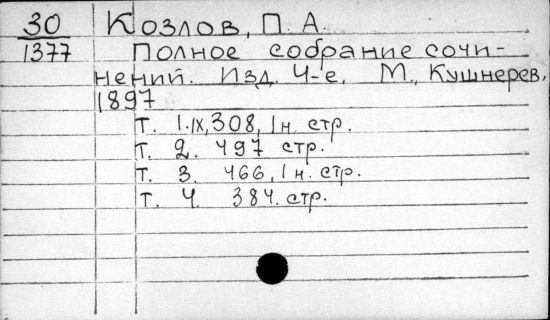 30 Козлов, П. А.
1377 Полное собрание сочи-
нений. Изд. 4-е. М., Кушнерев,
1897
Т. 1. IX, 308, 1 н. стр.
Т. 2. 497 стр.
Т. 3. 466, 1 н. стр.
Т. 4. 384. стр.